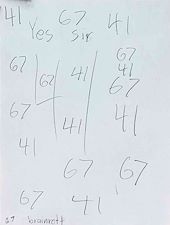 41 67 41
Yes Sir
67 67 41 67
41
67
67 41 41
41
67 67
67 41
67 brainrott